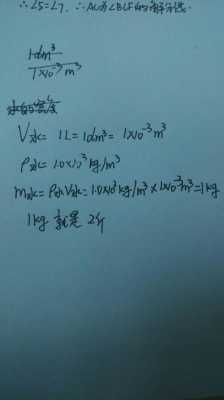 ∴∠5=∠7. ∴AC为∠BCF的角平分线.
1dm³
1×10⁻³m³
V水= 1L=1dm³= 1×10⁻³m³
ρ水= 1.0×10³kg/m³
m水=ρ水V水=1.0×10³kg/m³×1×10⁻³m³=1kg
1kg 就是 2斤